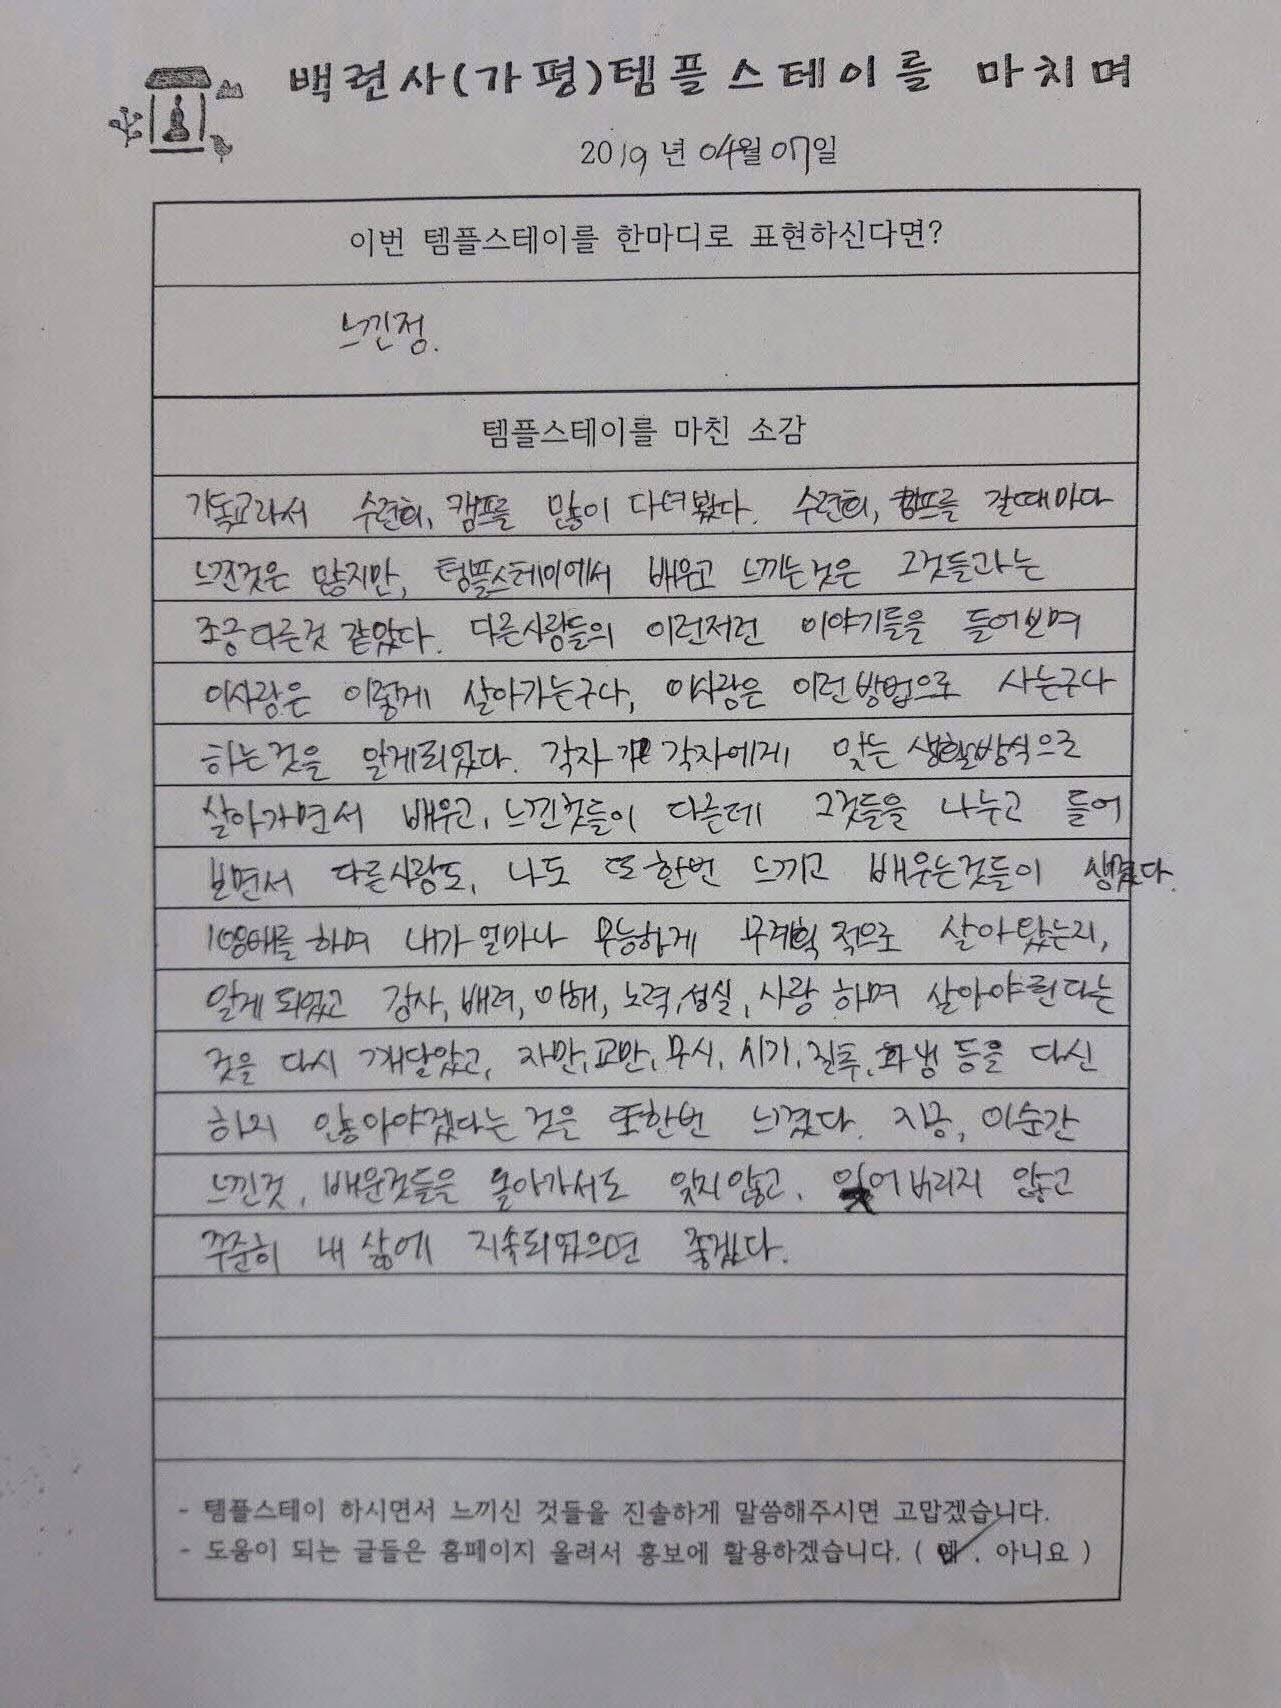 백련사(가평)템플스테이를 마치며
2019년 04월 07일
이번 템플스테이를 한마디로 표현하신다면?
느낀점.
템플스테이를 마친 소감
기독교라서 수련회, 캠프를 많이 다녀봤다. 수련회, 캠프를 갈때마다
느낀것은 많지만, 템플스테이에서 배우고 느끼는것은 그것들과는
조금 다른것 같았다. 다른사람들의 이런저런 이야기들을 들어보며
이사람은 이렇게 살아가는구나, 이사람은 이런방법으로 사는구나
하는것을 알게되었다. 각자 각자에게 맞는 생활방식으로
살아가면서 배우고, 느낀것들이 다른데 그것들을 나누고 들어
보면서 다른사람도, 나도 또 한번 느끼고 배우는것들이 생겼다.
108배를 하며 내가 얼마나 무능하게 무계획 적으로 살아왔는지,
알게 되었고 감사, 배려, 이해, 노력, 성실, 사랑 하며 살아야된다는
것을 다시 깨달았고, 자만, 교만, 무시, 시기, 질투, 등을 다신
하지 않아야겠다는 것을 또한번 느꼈다. 지금, 이순간
느낀것, 배운것들을 돌아가서도 잊지않고, 잊어버리지 않고
꾸준히 내 삶에 지속되었으면 좋겠다.
- 템플스테이 하시면서 느끼신 것들을 진솔하게 말씀해주시면 고맙겠습니다.
- 도움이 되는 글들은 홈페이지 올려서 홍보에 활용하겠습니다. ( 예 . 아니요 )